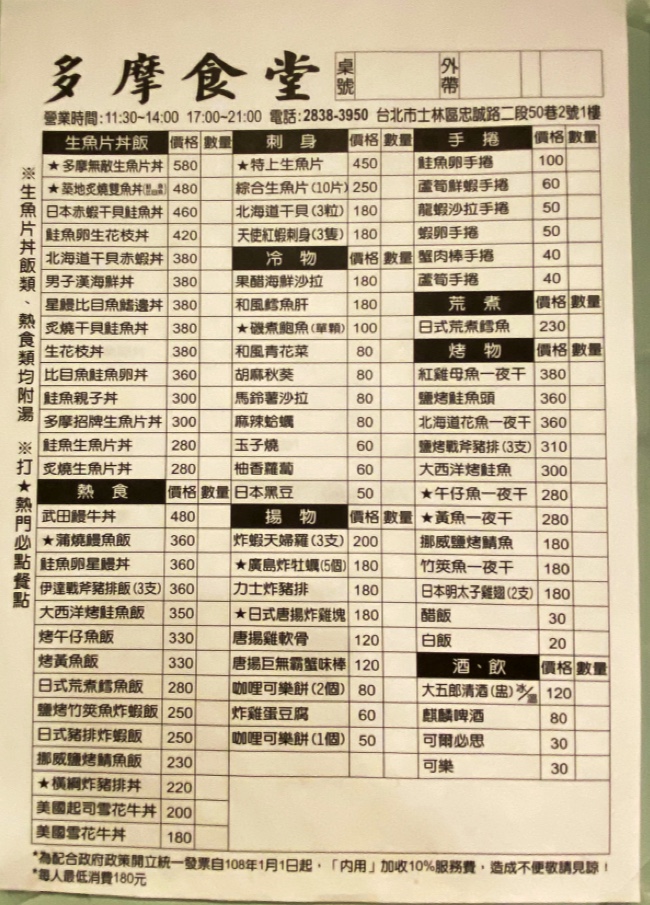 多摩食堂 桌號 外帶
營業時間:11:30~14:00 17:00~21:00 電話:2838-3950 台北市士林區忠誠路二段50巷2號1樓
※生魚片丼飯類、熱食類均附湯 ※打★熱門必點餐點
生魚片丼飯 價格 數量
★多摩無敵生魚片丼 580
★築地炙燒雙魚丼 480
日本赤蝦干貝鮭魚丼 460
鮭魚卵生花枝丼 420
北海道干貝赤蝦丼 380
男子漢海鮮丼 380
星鰻比目魚鰭邊丼 380
炙燒干貝鮭魚丼 380
生花枝丼 380
比目魚鮭魚卵丼 360
鮭魚親子丼 300
多摩招牌生魚片丼 300
鮭魚生魚片丼 280
炙燒生魚片丼 280
熱食 價格 數量
武田鰻牛丼 480
★蒲燒鰻魚飯 360
鮭魚卵星鰻丼 360
伊達戰斧豬排飯(3支) 360
大西洋烤鮭魚飯 350
烤午仔魚飯 330
烤黃魚飯 330
日式荒煮鱈魚飯 280
鹽烤竹筴魚炸蝦飯 250
日式豬排炸蝦飯 250
挪威鹽烤鯖魚飯 230
★橫綱炸豬排丼 220
美國起司雪花牛丼 200
美國雪花牛丼 180
刺身 價格 數量
★特上生魚片 450
綜合生魚片(10片) 250
北海道干貝(3粒) 180
天使紅蝦刺身(3隻) 180
冷物 價格 數量
果醋海鮮沙拉 180
和風鱈魚肝 180
★磯煮鮑魚(單顆) 100
和風青花菜 80
胡麻秋葵 80
馬鈴薯沙拉 80
麻辣蛤蠣 80
玉子燒 60
柚香蘿蔔 60
日本黑豆 50
揚物 價格 數量
炸蝦天婦羅(3支) 200
★廣島炸牡蠣(5個) 180
力士炸豬排 180
★日式唐揚炸雞塊 180
唐揚雞軟骨 120
唐揚巨無霸蟹味棒 120
咖哩可樂餅(2個) 80
炸雞蛋豆腐 60
咖哩可樂餅(1個) 50
手捲 價格 數量
鮭魚卵手捲 100
蘆筍鮮蝦手捲 60
龍蝦沙拉手捲 50
蝦卵手捲 50
蟹肉棒手捲 40
蘆筍手捲 40
荒煮 價格 數量
日式荒煮鱈魚 230
烤物 價格 數量
紅雞母魚一夜干 380
鹽烤鮭魚頭 360
北海道花魚一夜干 360
鹽烤戰斧豬排(3支) 310
大西洋烤鮭魚 300
★午仔魚一夜干 280
★黃魚一夜干 280
挪威鹽烤鯖魚 180
竹筴魚一夜干 180
日本明太子雞翅(2支) 180
醋飯 30
白飯 20
酒、飲 價格 數量
大五郎清酒(盅)冰/溫 120
麒麟啤酒 80
可爾必思 30
可樂 30
*為配合政府政策開立統一發票自108年1月1日起，「內用」加收10%服務費，造成不便敬請見諒！
*每人最低消費180元